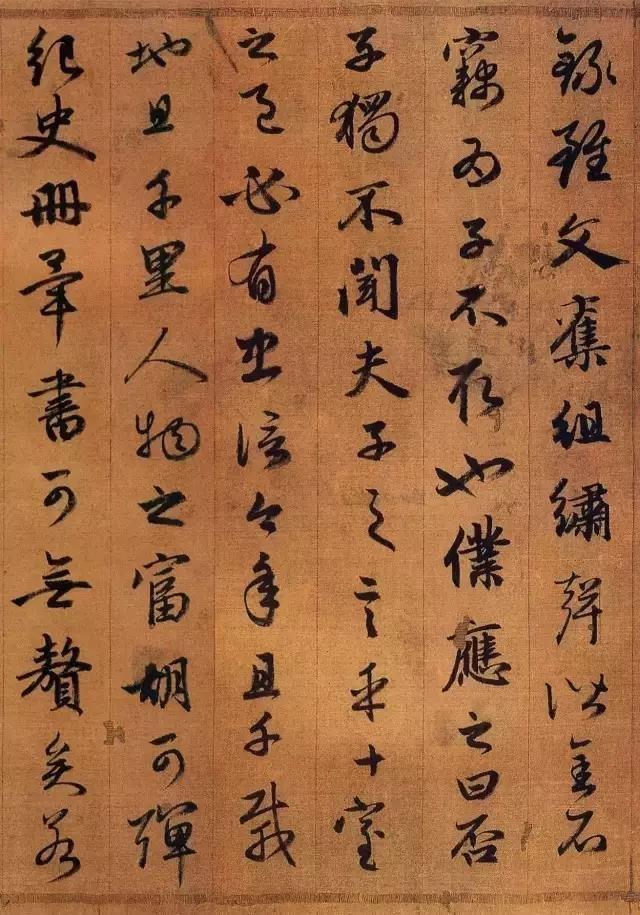 錄雖文奪組繡聲諧金石
竊為子不取也僕應之曰否
子獨不聞夫子之言乎十室
之邑必有忠信今年且千載
地且千里人物之富胡可殫
紀史冊畢書可無贅矣若